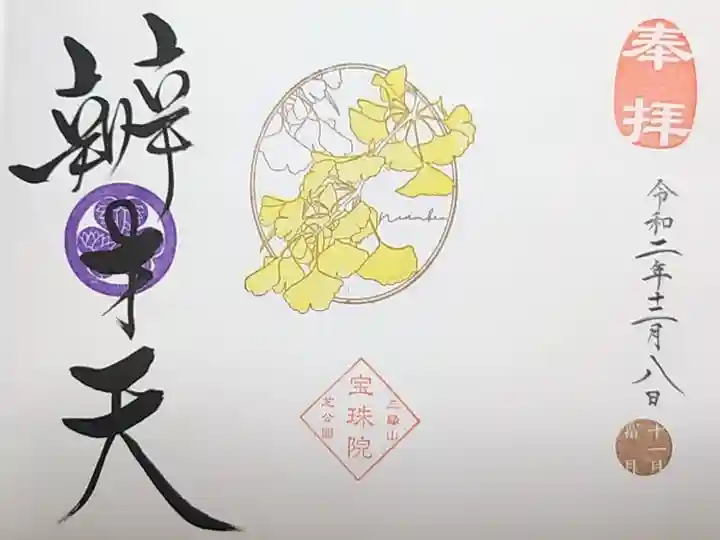 奉拝
令和二年十二月八日
十一月
霜月
宝珠院
三縁山
芝公園
辨才天